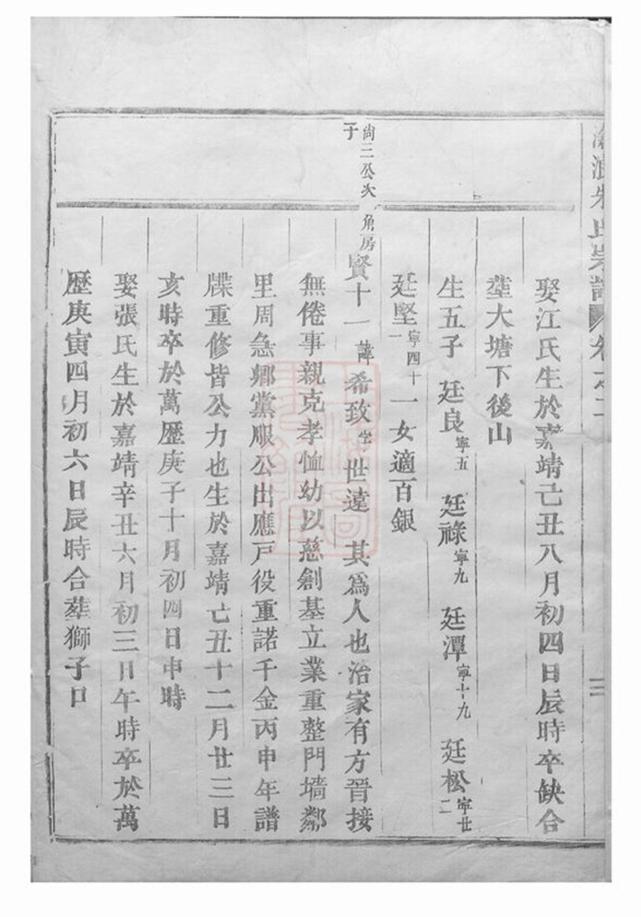 朱氏宗譜 卷之二
三
娶江氏生於嘉靖己丑八月初四日辰時卒缺合
塟大塘下後山
生五子 廷良寧五 廷祿寧九 廷潭寧十九 廷松寧廿二
廷堅寧四十一 一女適百銀
尚三公次子
角房
賢十一諱希致字世遠 其為人也治家有方晉接
無倦事親克孝恤幼以慈創基立業重整門墻鄰
里周急鄉黨服公出應戶役重諾千金丙申年譜
牒重修皆公力也生於嘉靖己丑十二月廿三日
亥時卒於萬歷庚子十月初四日申時
娶張氏生於嘉靖辛丑六月初三日午時卒於萬
歷庚寅四月初六日辰時合塟獅子口